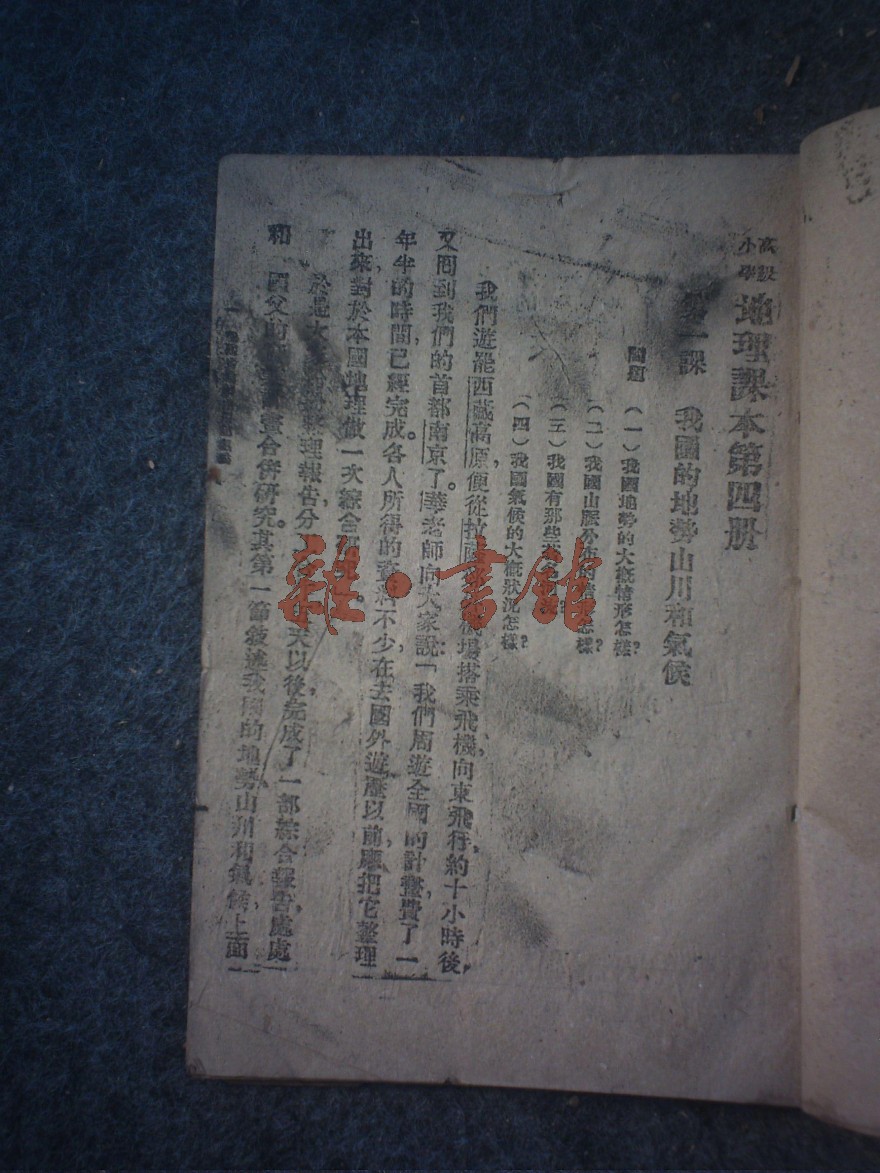 高級
小學
地理課本第四册
一課　我國的地勢山川和氣候
問題
（一）我國地勢的大概情形怎樣？
（二）我國山脈分布的情 怎樣？
（三）我國有那些
（四）我國氣候的大概狀況怎樣？
我們遊罷西藏高原便從拉薩 機場搭乘飛機，向東飛行，約十小時後，
又回到我們的首都南京了。華老師向大家說：「我們周遊全國的計畫，費了一
年半的時間，已經完成。各人所得的資料不少，在去國外遊歷以前，應把它整理
出來，對於本國地理做一次綜合 。
於是大 理報告，分 天以後，完成了一部綜合報告，處處
和　國父的 計畫合併研究。其第一節敍述我國的地勢山川和氣候，上面
一
雜·書館